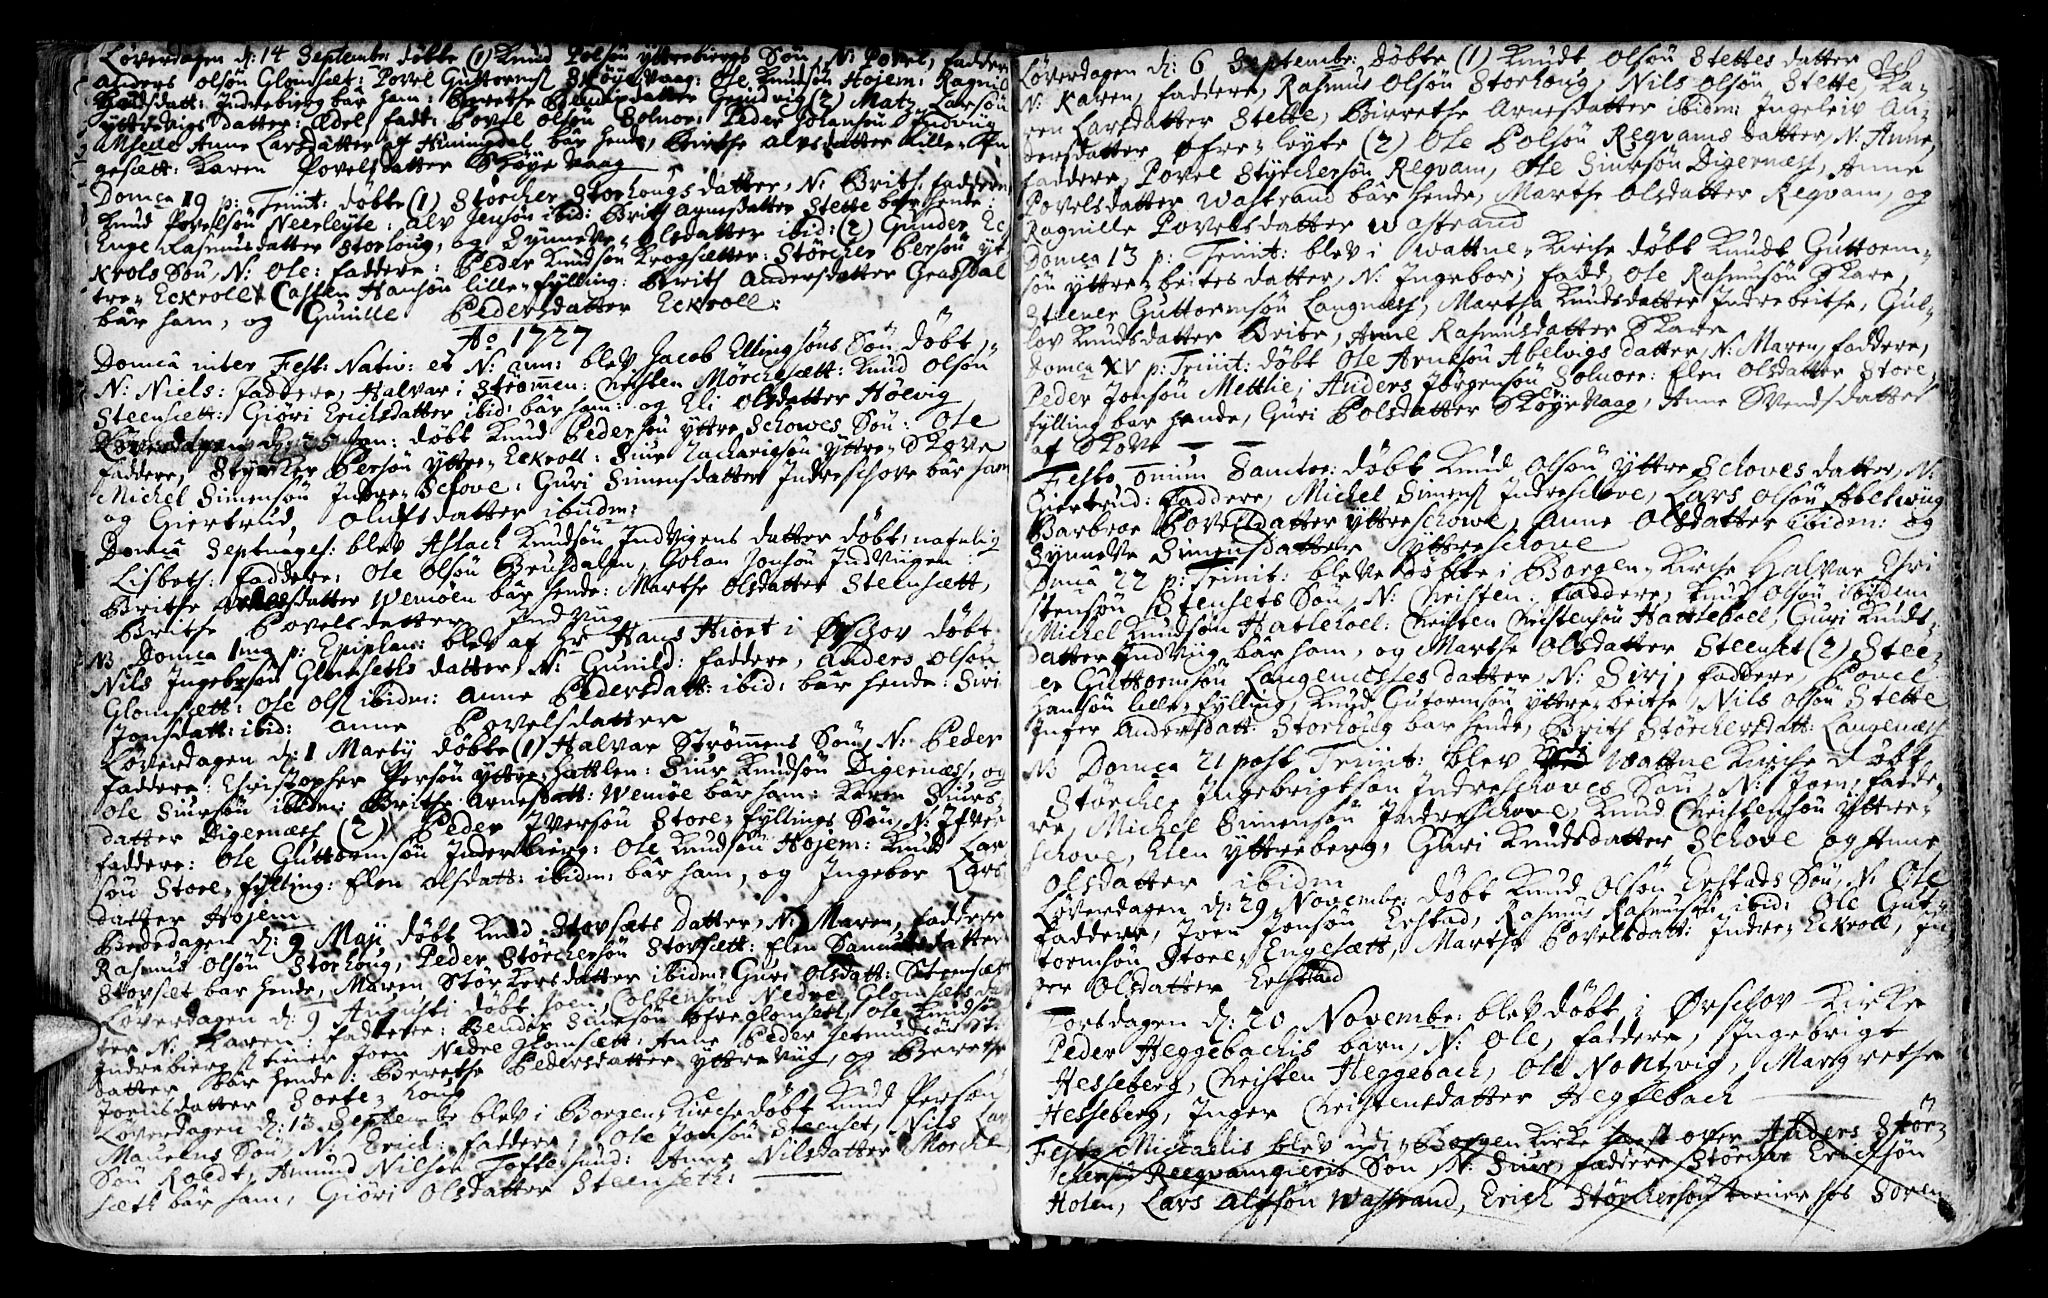 Løverdagen d: 14 Septembr døbte (1) Knud Polsøn Yttrebiergs Søn, N: Povel, fadder
Anders Olsøn Glomsæt: Povel Guttorms Skøyevaag: Ole Knudsøn Højem: Ragnil
Indrebierg bar ham: Berethe (2) Matz Larsøn
Yttrevigs datter: Ædel, fadd: Povel Olsøn Solnør: Peder Johansøn Indvug
Anne Larsdatter af bar hende, Birthe Alvsdatter Lille-En
gesætt: Karen Povelsdatter Skøyevaag
Domca 19 p: Trinit: døbte (1) Størcher Storhougs datter, N: Brith: faddere
Knud Povelsøn Neerleyte: Alv Jensøn ibid: Brith Agnesdatter Stette bar hende:
Enge Rasmusdatter Storhoug, og Synneve Olsdatter ibid: (2) Gunder Ec
krols Søn, N: Ole: faddere: Peder Knudsøn Krogsætter: Størcher Persøn yt
tre Eckroll: Casten Hansøn lille-fylling: Brith Andersdatter Grasdal
bar ham, og Gunille Pedersdatter Eckroll:
Ao 1727
Domca inter Fest: Nativ: et N: ann: blev Jacob Ellingsøns Søn døbt,
N: Niels: faddere, Halvar i Strømen: Christen Mørchesætt: Knud Olsøn
Steensett: Giøri Erichsdatter ibid: bar ham: og Eli Olsdatter Høevig
Løverdagen d: 25 Jan: døbt Knud Pedersøn yttre Schowes Søn: Ole
faddere, Styrker Persøn Yttre-Eckroll: Siur Zacharisøn yttre-Skove
Michel Simensøn Indre-Schove: Guri Simensdatter Indreschove bar ham
og Giertrud Olufsdatter ibidm:
Domca Septuages: blev Aslach Knudsøn Indvigens datter døbt, nafnlig
Lisbeth: faddere: Ole Olsøn Brusdalen, Johan Jonsøn Indviigen:
Brithe datter Wemøen bar hende: Marthe Olsdatter Steensætt,
Brithe Povelsdatter Indvug
NB Domca 1ma p: Epiphan: blev af Hr Hans Hiort i Ørschov døbt
Nils Ingebrsøn Glomseths datter, N: Gunild: faddere, Anders Olsøn
Glomsett: Ole Ols ibidm: Anne Pedersdatt: ibid: bar hende: Siri
Jonsdatt: ibid: Anne Povelsdatter
Løverdagen d: 1 Martij døbte (1) Halvar Strømens Søn, N: Peder
faddere: Christopher Persøn yttre-hattlen: Siur Knudsøn Digernæss, og
Ole Siursøn ibidm: Brithe Arnesdatt: Wemøe bar ham: Karen Siurs-
datter Digernæss (2) Peder Iversøn Store-fyllings Søn, N: Ifver
faddere: Ole Guttormsøn Inderbierg: Ole Knudsøn Højem: Knud Lar
søn Store-fylling: Elen Olsdatt: ibidm: bar ham, og Ingebor Lars
datter Højem
Bededagen d: 9 Maji døbt Knud Storsæts datter, N: Maren, faddere
Rasmus Olsøn Storhoug, Peder Størchersøn Storsett: Elen Samuelsdatter
Storsæt bar hende, Maren Størkersdatter ibidm: Guri Olsdatt: Steensæt
Løverdagen d: 9 Augusti døbt Joen Colbensøn Nedre Glomsets dat
ter N: Karen: faddere: Bendix Siursøn øfre glomsett, Ole Knudsøn
Indrebierg, tiener Joen Nedre Glomsætt: Anne Peder
datter bar hende: Berethe Pedersdatter yttrevug, og Berethe
Jonsdatter Sorte-houg
Løverdagen d: 13 Septembr blev i Borgen Kirche døbt Knud Persøn
Mauens Søn, N: Erich: faddere, Ole Jonsøn Steenset, Nils Lar
søn Roldt, Amund Nilsøn Toftesund: Anne Nilsdatter Morche
sætt bar ham, Giøri Olsdatter Steenseth:
Løverdagen d: 6 Septembr: døbte (1) Knudt Olsøn Stettes datter
N: Karen, faddere, Rasmus Olsøn Storhoug, Nils Olsøn Stette, Ka-
ren Larsdatter Stette, Birrethe Arnesdatter ibidm: Ingeleiv An-
dersdatter øfre-løyte (2) Ole Polsøn Reqvams datter, N: Anne,
faddere, Povel Styrchersøn Reqvam, Ole Siursøn Digernæss, Anne
Povelsdatter Wastrand bar hende, Marthe Olsdatter Reqvam, og
Ragnille Povelsdatter Wastrand
Domca 13 p: Trinit: blev i Wattne-Kirche døbt Knudt Guttorm-
søn yttre-beites datter, N: Ingebor; fadd, Ole Rasmusøn Skare,
Stener Guttormsøn Langnæss, Martha Knudsdatter Indrebeithe, Gul-
lov Knudsdatter Brite, Anne Rasmusdatter Skare
Domca XV p: Trinit: døbt Ole Arnesøn Abelvigs datter, N: Maren, faddere,
Peder Jonsøn Mettlie, Anders Jørgensøn Solnoer: Elen Olsdatter Store-
fylling bar hende, Guri Polsdatter Skøyevaag, Anne Svendsdatter
af Skove
Festo omium Sanctor: døbt Knud Olsøn Yttre Schoves datter, N:
Giertrud: faddere, Michel Simens Indreschove, Lars Olsøn Abelwiig
Barbroe Povelsdatter yttreschowe, Anne Olsdatter ibidm: og
Synneve Simensdatter yttreschove
Domca 22 p: Trinit: bleve døbte i Borgen-Kirche Halvar Chri
stensøn Stensets Søn, N: Christen: faddere, Knud Olsøn ibidem
Michel Knudsøn Hatlehoel: Christen Christensøn Hattlehoel, Guri Knuds-
datter Indviig bar ham, og Marthe Olsdatter Steenset (2) Stee-
er Guttormsøn Langenesses datter, N: Siri, faddere, Povel
Hansøn lille-fylling, Knud Gutormsøn yttre-beithe, Nils Olsøn Stette
Inger Andersdatt: Storhoug bar hende, Brith Størchersdatt: Langenæss
NB Domca 21 post Trinit: blev Wattne Kirche døbt
Størcher Ingebrigtsøn Indreschoves Søn, N: Joen, fadde-
re, Michel Simensøn Indreschove, Knud Christensøn Yttre-
schove, Elen yttreberg, Guri Knudsdatter Schove og Anne
Olsdatter ibidm
Løverdagen d: 29 Novembr døbt Knud Olsøn Erstads Søn, N: Ole
faddere, Joen Jonsøn Erstad, Rasmus Rasmuss: ibid: Ole Gut-
tormsøn Store-Engesætt, Marthe Povelsdatt: Indre-Eckroll, In
ger Olsdatter Erstad
Torsdagen d: 20 Novembr: blev døbt i Ørschov Kirke
Peder Heggebachis barn, N: Ole, faddere, Ingebrigt
Hesseberg, Christen Heggebach, Ole Nontvig, Margrethe
Hesseberg, Inger Christensdatter Hegsebach
Festo Michaelis blev udi Borgen Kirke over Anders Stør-
chersøn Reqvamgieris Søn N: Siur, faddere Størcher Ericksøn
Holen, Lars Alfsøn Wastrand, Erich Størchersøn tiener hos Soren